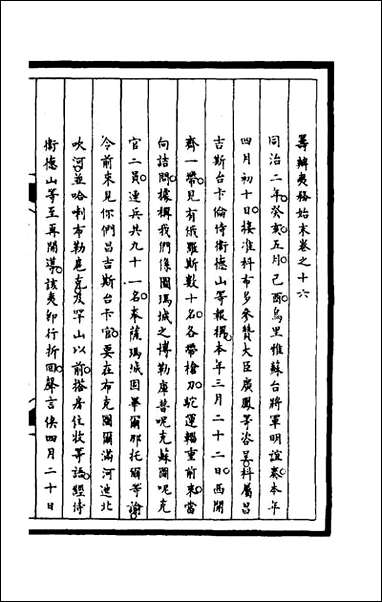 籌辦夷務始末卷之十六
同治二年癸亥五月己酉烏里雅蘇台將軍明誼奏本年
四月初十日接准科布多參贊大臣廣鳳等咨呈科屬昌
吉斯台卡倫侍衛德山等報稱本年三月二十二日西開
齊一帶見有俄羅斯數十名各帶槍刀駝運輜重前來當
向詰問據稱我們係圖瑪城之博勒庫普呢克蘇爾呢克
官二員連兵共九十一名奉薩瑪城固畢爾那托爾等諭
令前來見你們昌吉斯台卡官要在布克圖爾滿河迤北
吹河並哈喇布勒庵克及罕山以前搭房住牧等語經侍
衛德山等至再開導該夷卽行折回聲言俟四月二十日